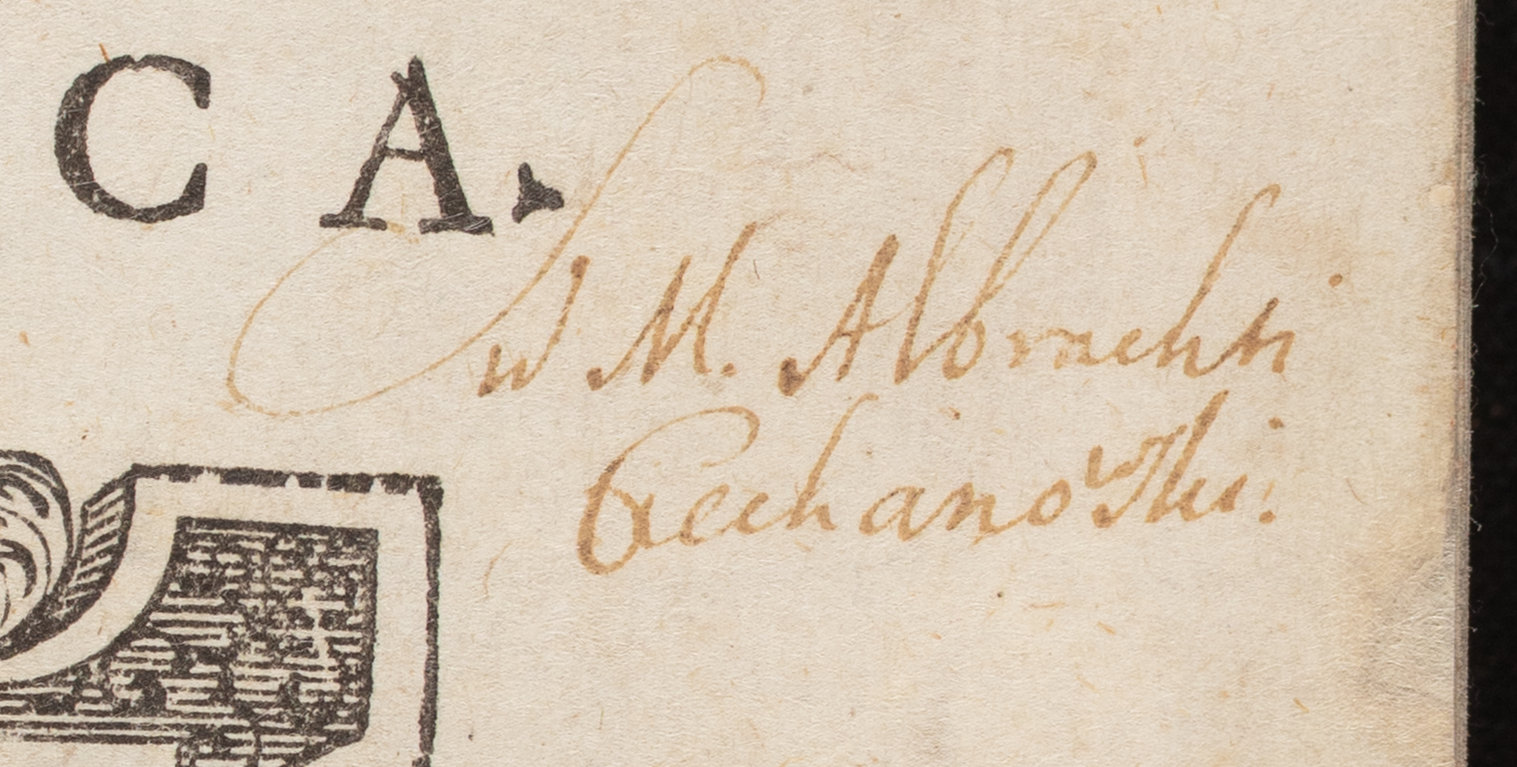 C A.
M. Albrachti
Ciechanowski.